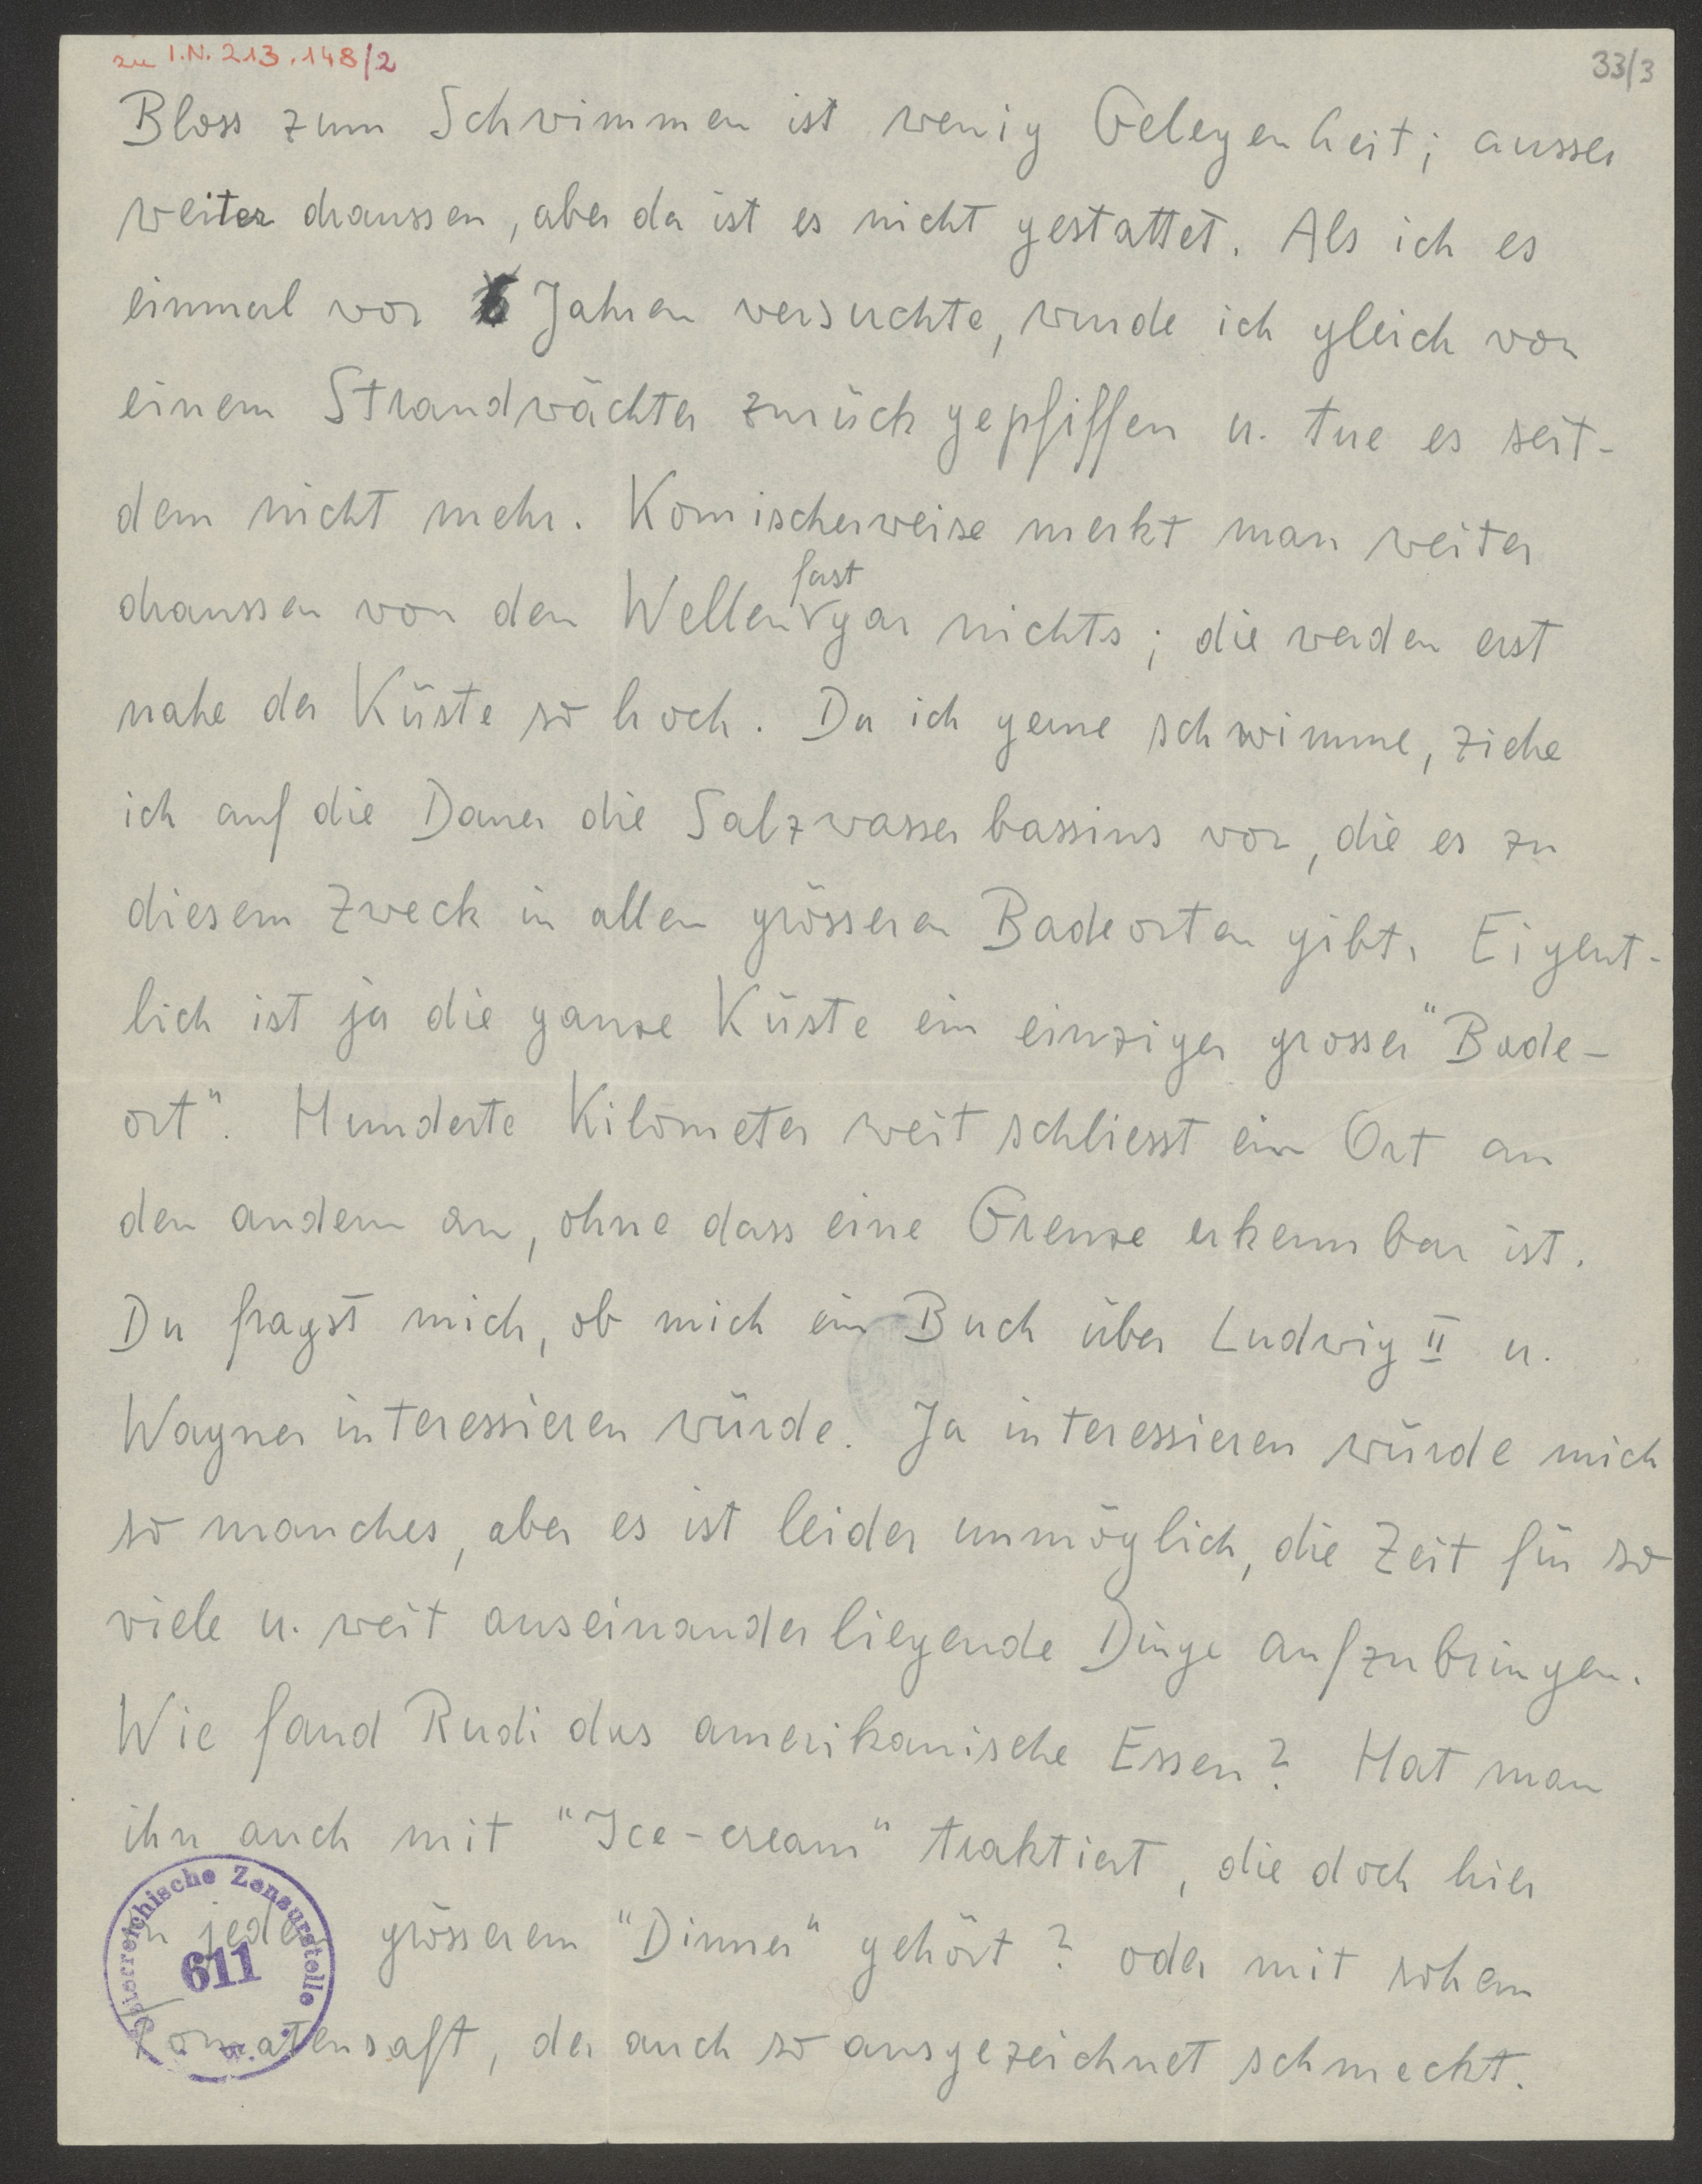 zu I.N. 213.148/2
33/3
Bloss zum Schwimmen ist wenig Gelegenheit; ausser
weiter draussen, aber da ist es nicht gestattet. Als ich es
einmal vor 6 Jahren versuchte, wurde ich gleich von
einem Strandwächter zurück gepfiffen u. tue es seit-
dem nicht mehr. Komischerweise merkt man weiter
fast
draussen von den Wellen gar nichts; die werden erst
nahe der Küste so hoch. Da ich gerne schwimme, ziehe
ich auf die Dauer die Salzwasserbassins vor, die es zu
diesem Zweck in allen grösseren Badeorten gibt. Eigent-
lich ist ja die ganze Küste ein einziger grosser "Bade-
ort". Hunderte Kilometer weit schliesst ein Ort an
den andern an, ohne dass eine Grenze erkennbar ist.
Du fragst mich, ob mich ein Buch über Ludwig II u.
Wagner interessieren würde. Ja interessieren würde mich
so manches, aber es ist leider unmöglich, die Zeit für so
viele u. weit auseinanderliegende Dinge aufzubringen.
Wie fand Rudi das amerikanische Essen? Hat man
ihn auch mit "Ice-cream" traktiert, die doch hier
zu jedem grösserem "Dinner" gehört? oder mit rohem
Tomatensaft, der auch so ausgezeichnet schmeckt.
Österreichische Zensurstelle
611